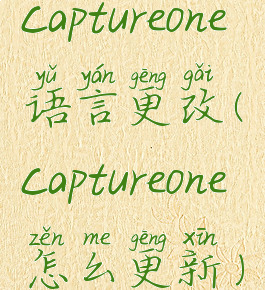 Captureone
yǔ yán gēng gǎi
语言更改(
Captureone
zěn me gēng xīn
怎么更新)